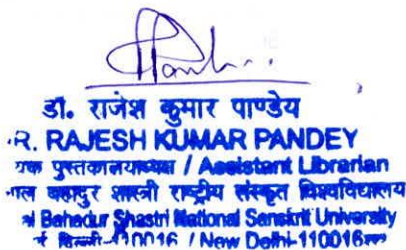 डॉ. राजेश कुमार पाण्डेय
R. RAJESH KUMAR PANDEY
पुस्तकालयाध्यक्ष / Assistant Librarian
बहादुर शास्त्री राष्ट्रीय संस्कृत विश्वविद्यालय
Bahadur Shastri National Sanskrit University
110016 / New Delhi-110016